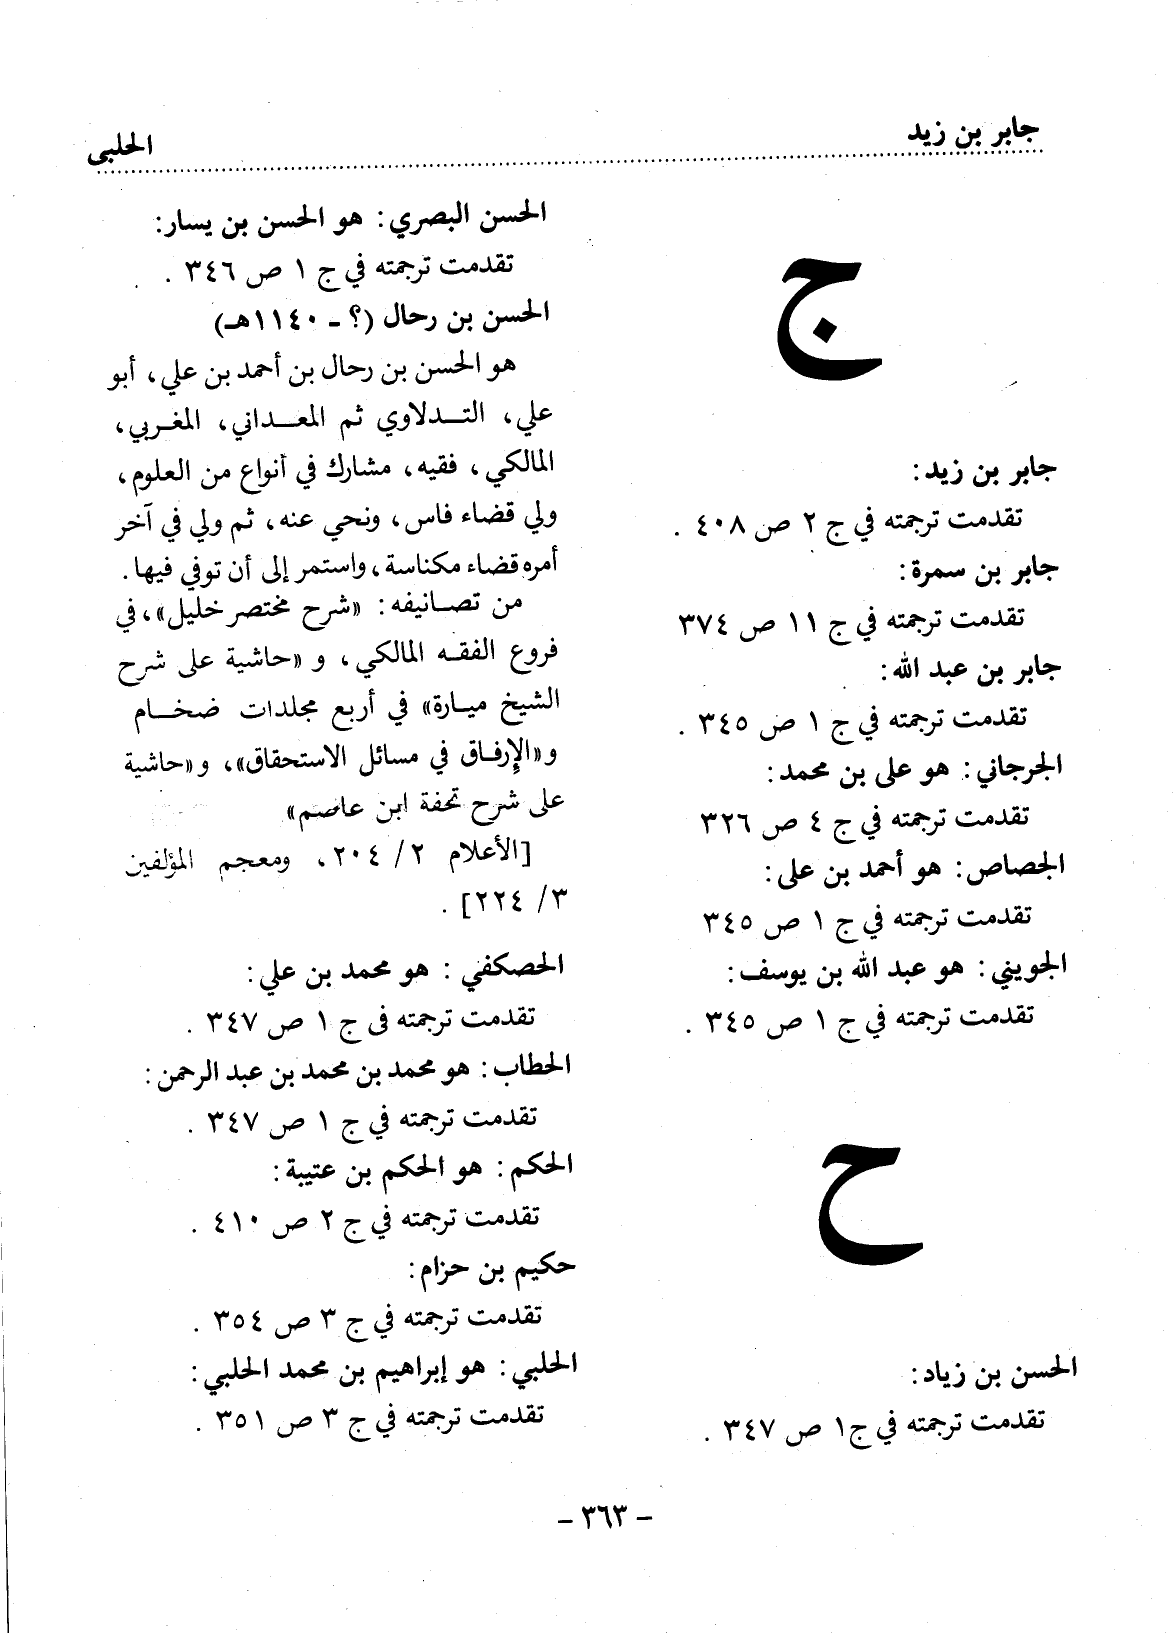 جابر بن زيد
الحلبى
ج
جابر بن زيد:
تقدمت ترجمته في ج ٢ ص ٤٠٨ .
جابر بن سمرة:
تقدمت ترجمته في ج ١١ ص ٣٧٤
جابر بن عبد الله:
تقدمت ترجمته في ج ١ ص ٣٤٥ .
الجرجاني: هو على بن محمد:
تقدمت ترجمته في ج ٤ ص ٣٢٦
الجصاص: هو أحمد بن على:
تقدمت ترجمته في ج ١ ص ٣٤٥
الجويني: هو عبد الله بن يوسف:
تقدمت ترجمته في ج ١ ص ٣٤٥ .
ح
الحسن بن زياد:
تقدمت ترجمته في ج١ ص ٣٤٧ .
الحسن البصري: هو الحسن بن يسار:
تقدمت ترجمته في ج ١ ص ٣٤٦ .
الحسن بن رحال (؟ - ١١٤٠هـ)
هو الحسن بن رحال بن أحمد بن علي، أبو
علي، التـدلاوي ثم المعـداني، المغـربي،
المالكي، فقيه، مشارك في أنواع من العلوم،
ولي قضاء فاس، ونحي عنه، ثم ولي في آخر
أمره قضاء مكناسة، واستمر إلى أن توفي فيها.
من تصـانيفه: «شرح مختصر خليل»، في
فروع الفقـه المالكي، و «حاشية على شرح
الشيخ ميـارة» في أربع مجلدات ضخـام
و«الإرفـاق في مسائل الاستحقاق»، و«حاشية
على شرح تحفة ابن عاصم»
[الأعلام ٢/ ٢٠٤، ومعجم المؤلفين
٣/ ٢٢٤] .
الحصكفي : هو محمد بن علي:
تقدمت ترجمته فى ج ١ ص ٣٤٧ .
الحطاب: هو محمد بن محمد بن عبد الرحمن:
تقدمت ترجمته في ج ١ ص ٣٤٧ .
الحكم: هو الحكم بن عتيبة:
تقدمت ترجمته في ج ٢ ص ٤١٠ .
حكيم بن حزام:
تقدمت ترجمته في ج ٣ ص ٣٥٤ .
الحلبي: هو إبراهيم بن محمد الحلبي:
تقدمت ترجمته في ج ٣ ص ٣٥١ .
- ٣٦٣ -